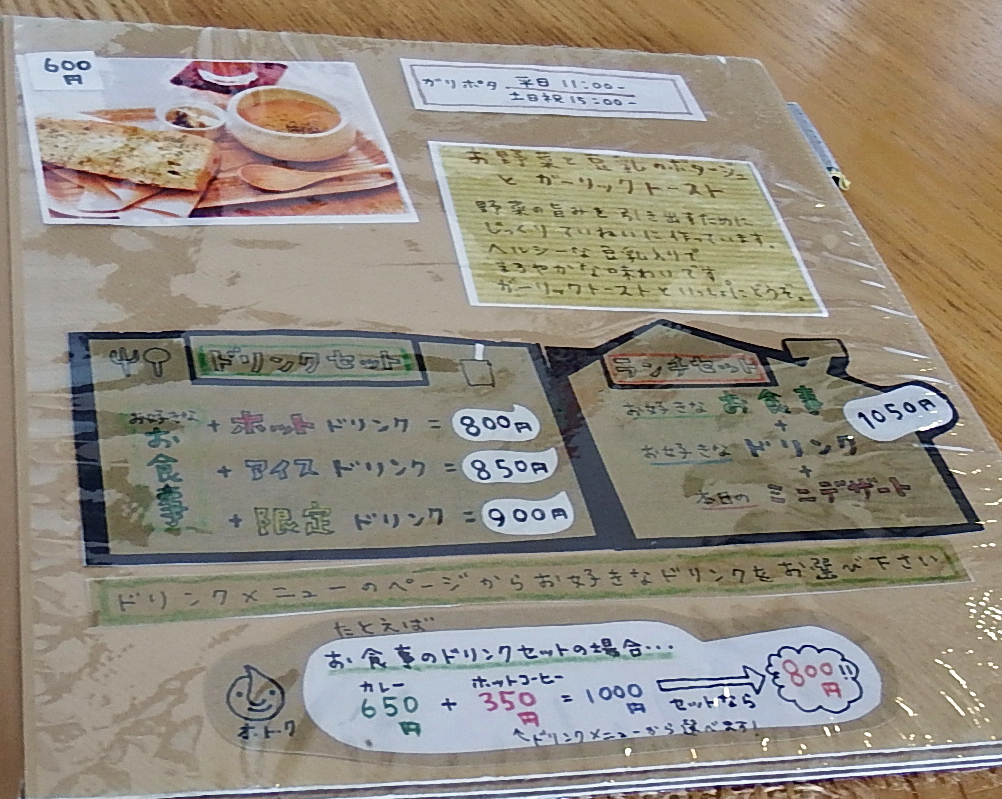 600円
ガリポタ 平日 11:00-
土日祝 15:00-
お野菜と豆乳のポタージュ
と ガーリックトースト
野菜の旨みを引き出すために
じっくりていねいに作っています。
ヘルシーな豆乳入りで
まろやかな味わいです。
ガーリックトーストといっしょにどうぞ。
ドリンクセット
お好きな
お食事
+ ホットドリンク = 800円
+ アイスドリンク = 850円
+ 限定ドリンク = 900円
ランチセット
お好きな お食事
+
お好きな ドリンク
+
本日の ミニデザート
1050円
ドリンクメニューのページからお好きなドリンクをお選び下さい
たとえば
お食事のドリンクセットの場合・・・
カレー ホットコーヒー
650円 + 350円 = 1000円 セットなら 800円!!
ドリンクメニューから選べます!
オ・ト・ク